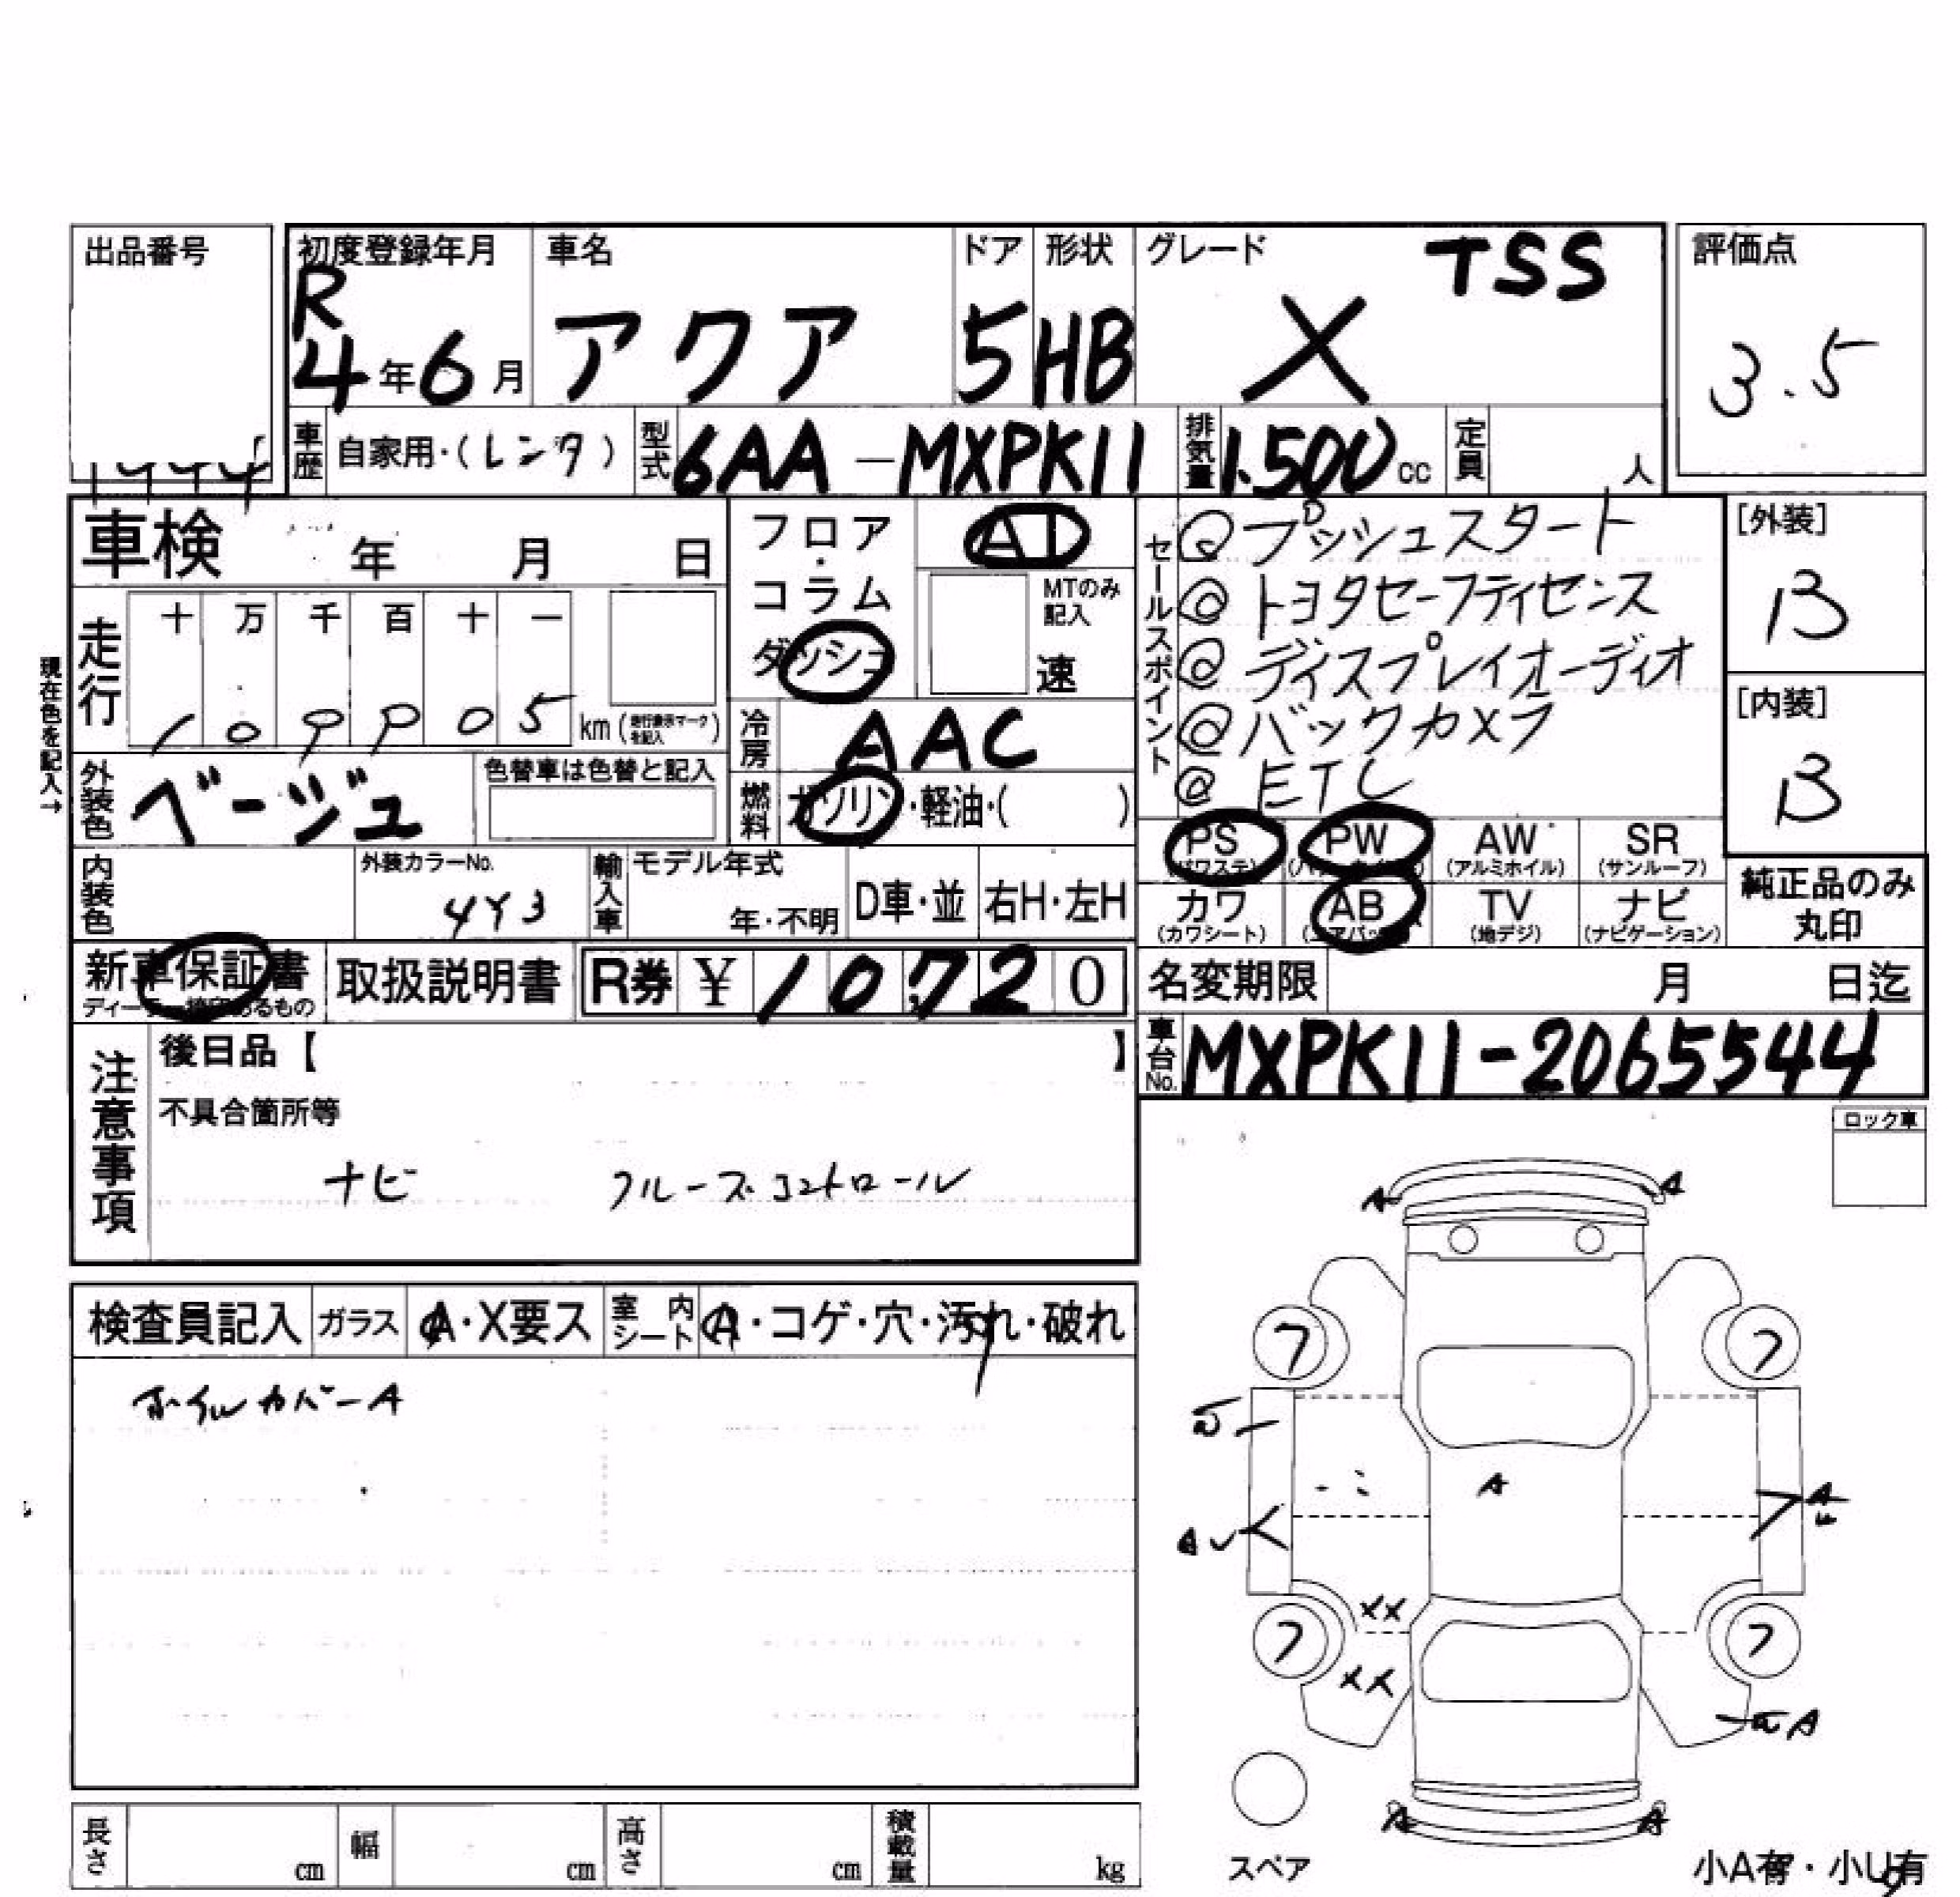 出品番号
初度登録年月 R 4年6月
車名 アクア
ドア 5
形状 HB
グレード X TSS
評価点 3.5
車歴 自家用・(レンタ)
型式 6AA-MXPK11
排気量 1.500cc
定員 人
車検 年 月 日
フロア・コラム ダッシュ
AT
MTのみ記入 速
走行 十 万 千 百 十 一
109905 km (走行表示マークを記入)
現在色を記入→
冷房 AAC
外装色 ベージュ
色替車は色替と記入
燃料 ガソリン・軽油・( )
内装色
外装カラーNo. 4Y3
輸入車 モデル年式 年・不明
D車・並 右H・左H
新車保証書
取扱説明書
R券 ¥10720
セールスポイント
@ プッシュスタート
@ トヨタセーフティセンス
@ ディスプレイオーディオ
@ バックカメラ
@ ETC
[外装] B
[内装] B
PS (パワステ) PW AW (アルミホイル) SR (サンルーフ)
カワ (カワシート) AB (エアバッグ) TV (地デジ) ナビ (ナビゲーション)
純正品のみ丸印
名変期限 月 日迄
車台No. MXPK11-2065544
注意事項
後日品【 】
不具合箇所等
ナビ クルーズコントロール
ロック車
検査員記入 ガラス A・X要ス 室内シート A・コゲ・穴・汚れ・破れ
ホイルカバーA
A A
フ フ
A
A
XX
フ フ
XX
A
A A
スペア
小A有・小U有
長さ cm 幅 cm 高さ cm 積載量 kg